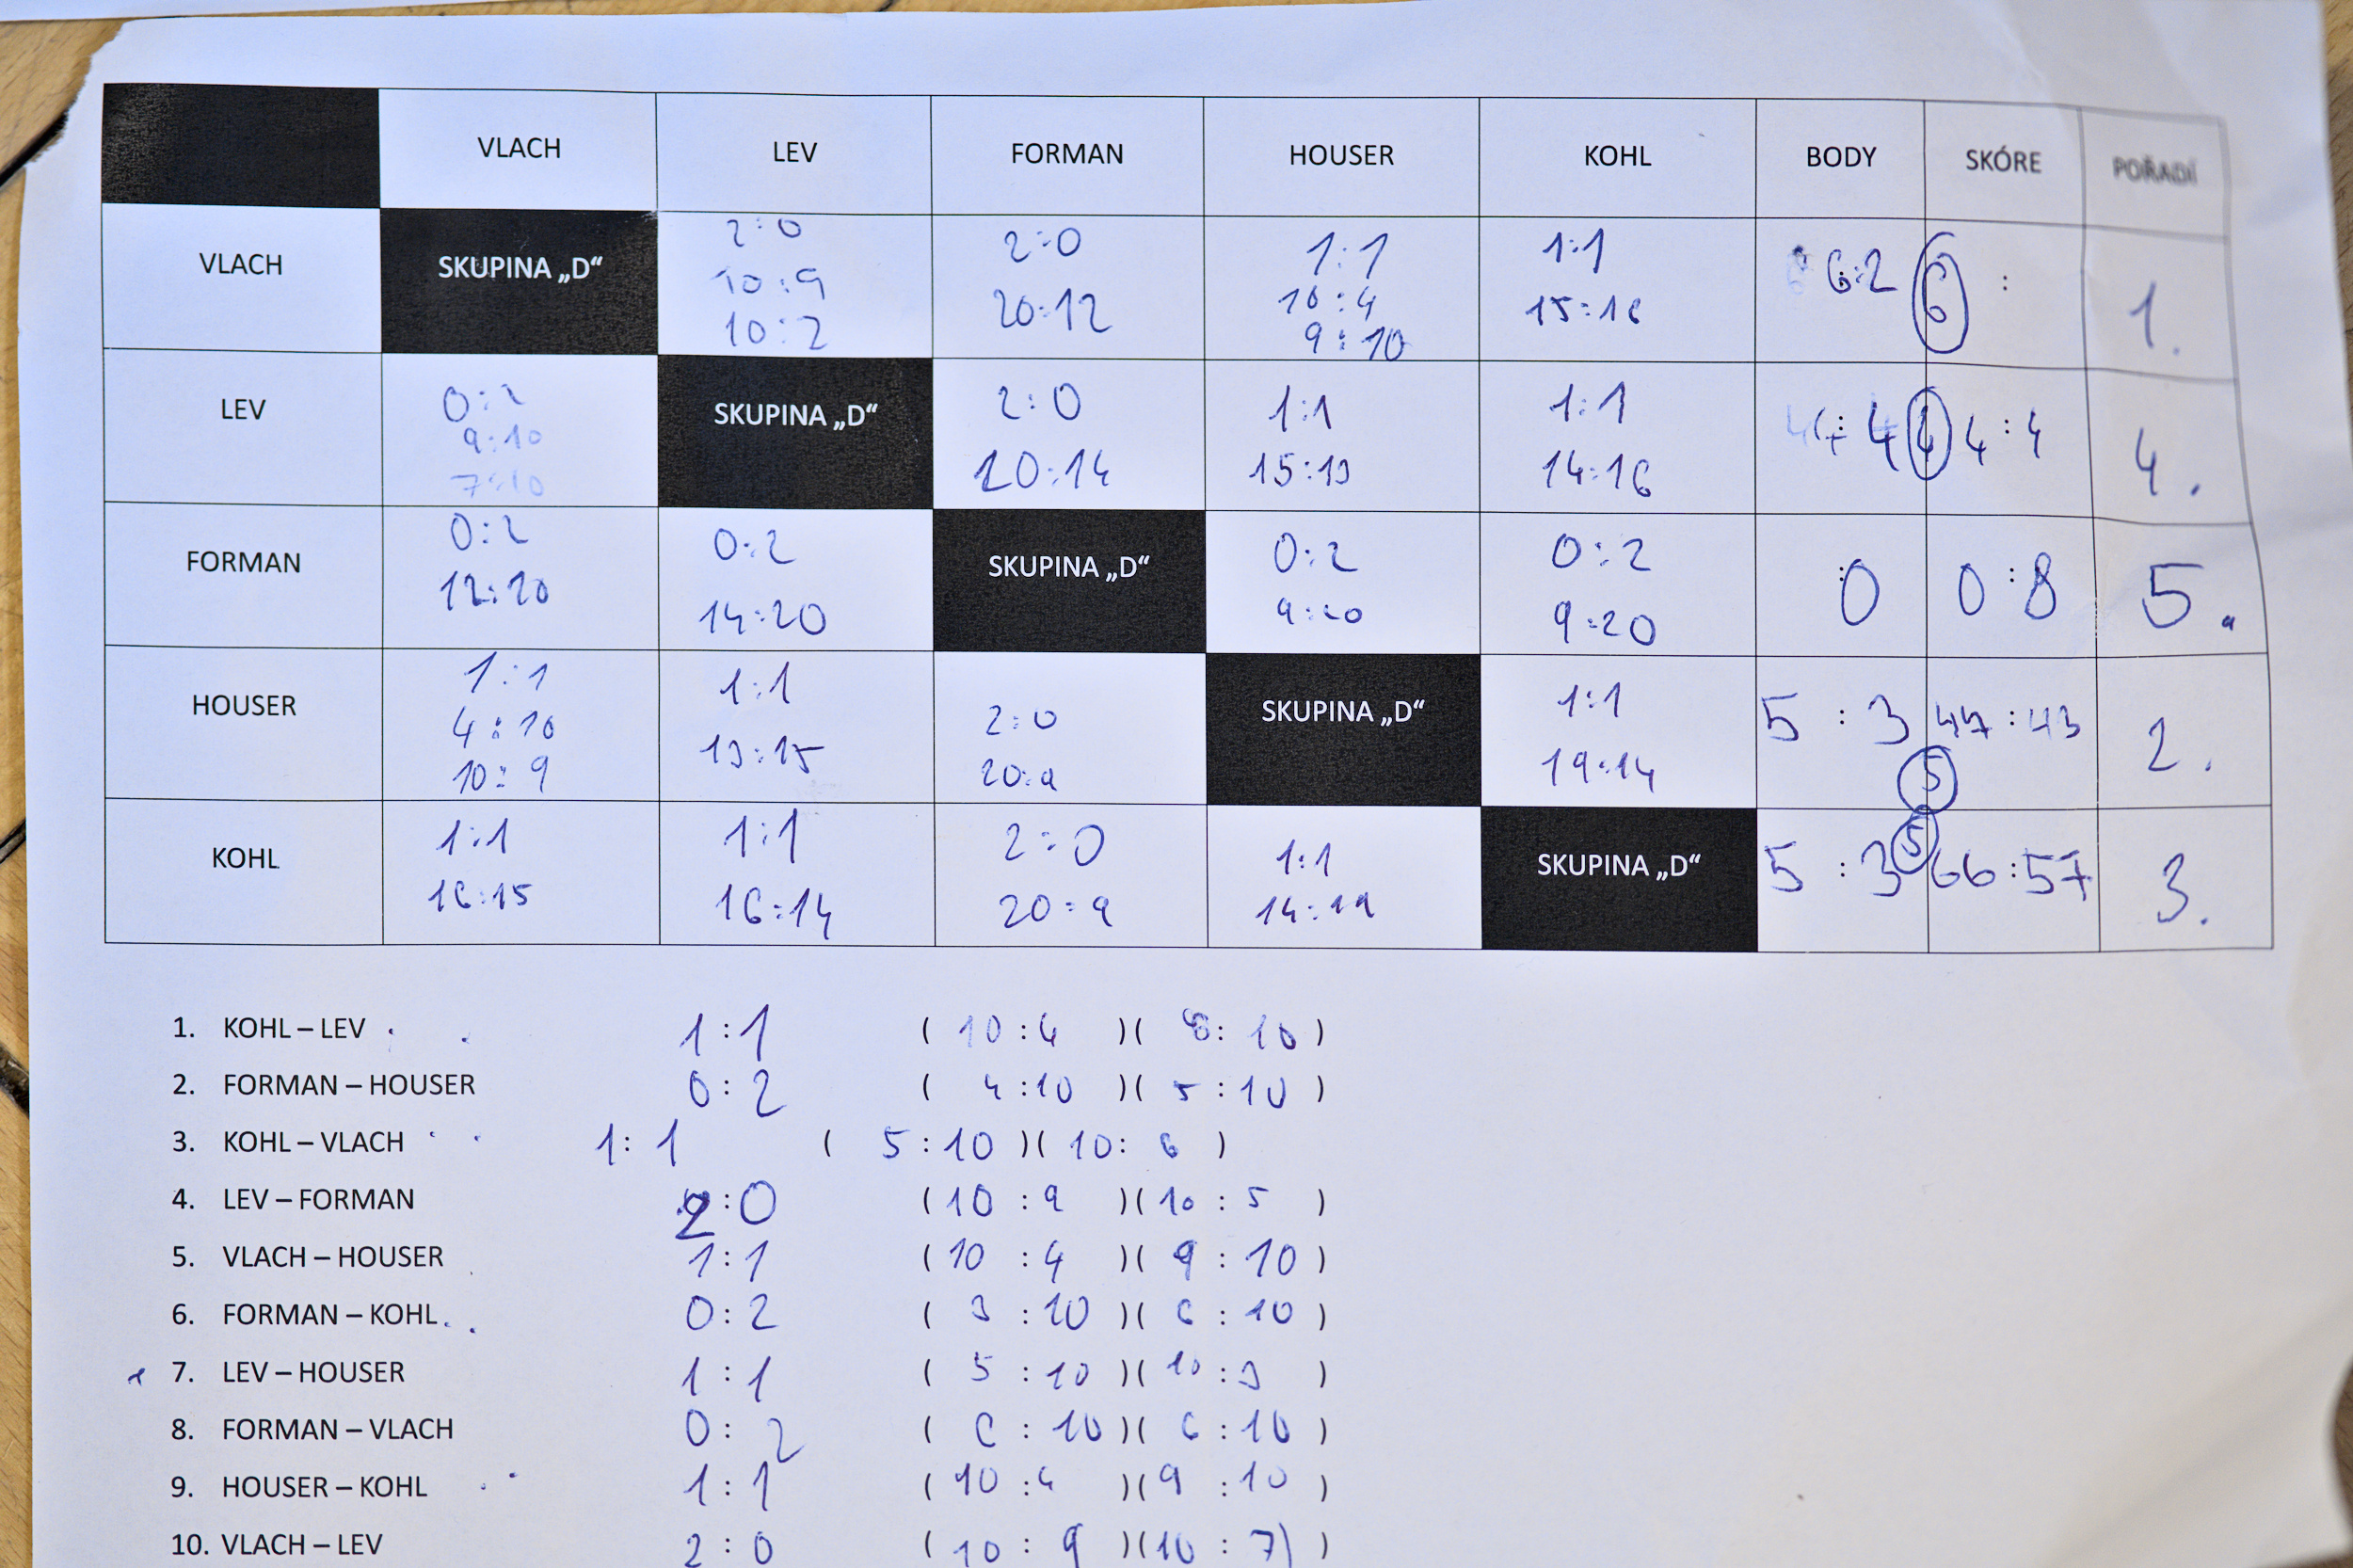 VLACH LEV FORMAN HOUSER KOHL BODY SKÓRE POŘADÍ
VLACH SKUPINA „D“ 2:0 2:0 1:1 1:1 6:2 6 : 1.
10:9 20:12 10:4 15:16 6
10:2 9:10
LEV 0:2 SKUPINA „D“ 2:0 1:1 1:1 : 4 4 4:4 4.
9:10 20:14 15:13 14:16
7:10
FORMAN 0:2 0:2 SKUPINA „D“ 0:2 0:2 :0 0:8 5.
12:20 14:20 9:20 9:20
HOUSER 1:1 1:1 2:0 SKUPINA „D“ 1:1 5:3 47:43 2.
4:10 13:15 20:9 19:14 5
10:9
KOHL 1:1 1:1 2:0 1:1 SKUPINA „D“ 5:3 5 66:57 3.
16:15 16:14 20:9 14:19
1. KOHL – LEV 1:1 (10:4)(6:10)
2. FORMAN – HOUSER 0:2 (4:10)(5:10)
3. KOHL – VLACH 1:1 (5:10)(10:6)
4. LEV – FORMAN 2:0 (10:9)(10:5)
5. VLACH – HOUSER 1:1 (10:4)(9:10)
6. FORMAN – KOHL 0:2 (3:10)(6:10)
7. LEV – HOUSER 1:1 (5:10)(10:3)
8. FORMAN – VLACH 0:2 (6:10)(6:10)
9. HOUSER – KOHL 1:1 (10:4)(9:10)
10. VLACH – LEV 2:0 (10:9)(10:7)